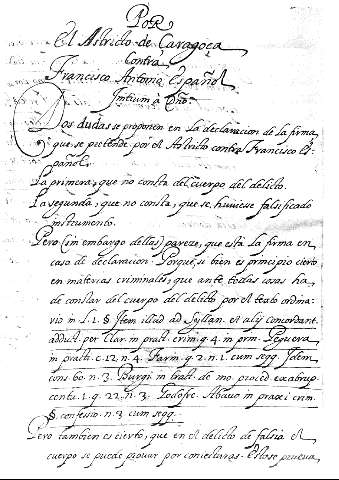 Por
El Astricto de Caragoça
Contra
Francisco Antonio Español
Initium à Dño.
Dos dudas se proponen en la declaracion de la firma,
que se pretende por el Astricto contra Francisco Es-
pañol.
La primera, que no consta del cuerpo del delicto.
La segunda, que no consta, que se huuiese falsificado
instrumento.
Pero (sin embargo dellas) pareze, que està la firma en
caso de declaracion. Porque, si bien es principio cierto
en materias criminales, que ante todas cosas ha
de constar del cuerpo del delicto por el texto ordina-
rio in l. 1. § Item illud ad Syllan. et alij concordant.
adduct. per Clar. in pract. crim. q. 4. in prin. Peguera
in practi. c. 12. n. 4. Farin. q. 2. n. 1. cum seqq. Idem
cons. 60. n. 3. Burgi in tract. de mo. proced. ex abrup.
centu. 1. q. 22. n. 3. Follofre. Abauo in praxi crim.
§. confessio. n. 3. cum seqq.
Pero tambien es cierto, que en el delicto de falsia el
cuerpo se puede prouar por conieturas. Esto se prueua